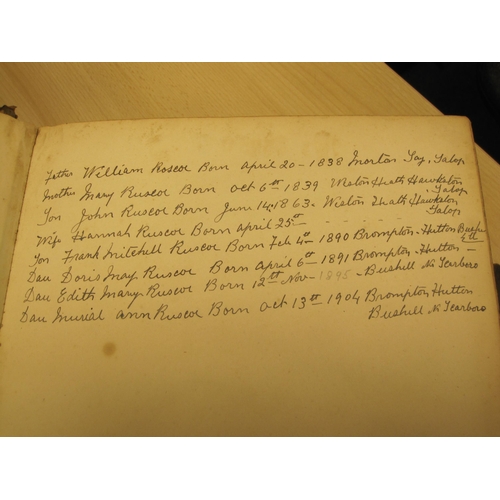 Father William Roscoe Born April 20 - 1838 Morton Say, Salop
Mother Mary Ruscoe Born Oct 6th 1839 Weston Heath Hawkston, Salop
Son John Ruscoe Born June 14, 1863. Weston Heath Hawkston, Salop
Wife Hannah Ruscoe Born April 25th - - - - - -
Son Frank Mitchell Ruscoe Born Feb 4th 1890 Brompton - Hutton
Dau Doris May Ruscoe Born April 6th 1891 Brompton - Hutton -
Dau Edith Mary Ruscoe Born 12th Nov - 1895 - Bushell Nr Scarboro
Dau Murial Ann Ruscoe Born Oct 13th 1904 Brompton, Hutton
Bushell Nr Scarboro